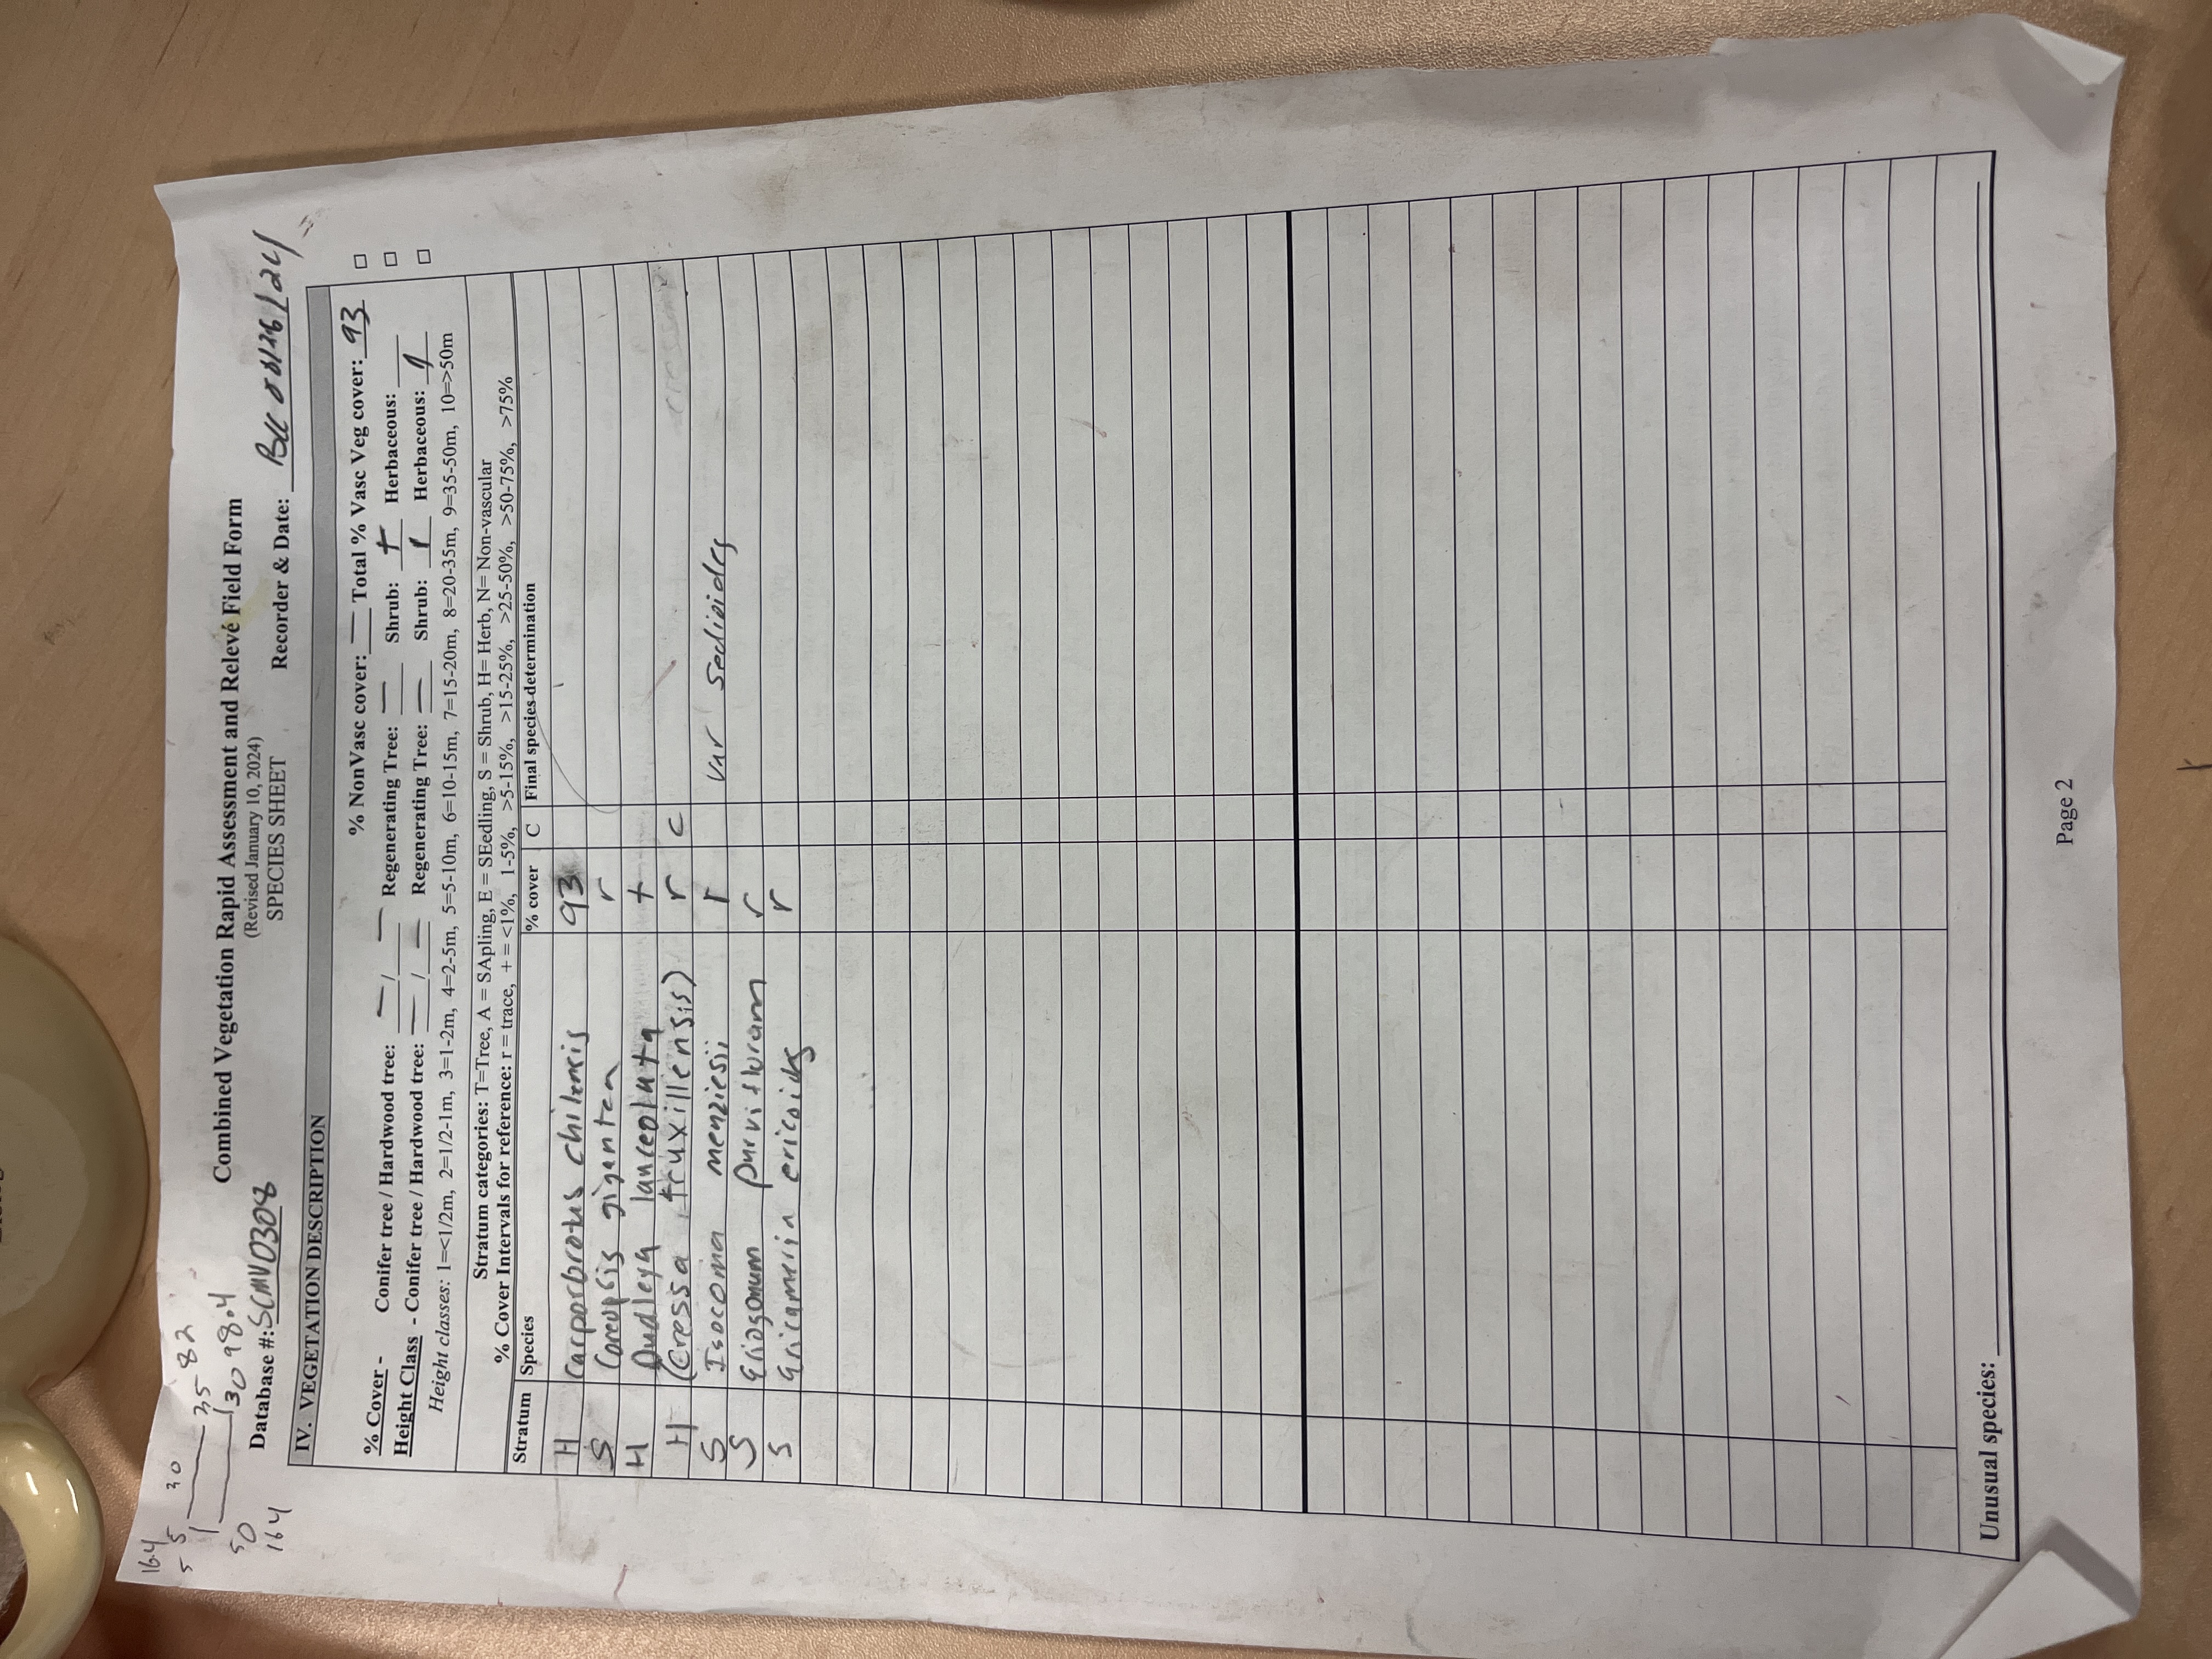 164
5 5 30
1 35 82
50 13098.4
164
Combined Vegetation Rapid Assessment and Relevé Field Form
(Revised January 10, 2024)
Database #: SCMVD308 SPECIES SHEET Recorder & Date: 08/26/24
IV. VEGETATION DESCRIPTION
% NonVasc cover: — Total % Vasc Veg cover: 93 □
% Cover - Conifer tree / Hardwood tree: — / — Regenerating Tree: — Shrub: + Herbaceous: □
Height Class - Conifer tree / Hardwood tree: — / — Regenerating Tree: — Shrub: 1 Herbaceous: 1 □
Height classes: 1=<1/2m, 2=1/2-1m, 3=1-2m, 4=2-5m, 5=5-10m, 6=10-15m, 7=15-20m, 8=20-35m, 9=35-50m, 10=>50m
Stratum categories: T=Tree, A = SApling, E = SEedling, S = Shrub, H= Herb, N= Non-vascular
% Cover Intervals for reference: r = trace, + = <1%, 1-5%, >5-15%, >15-25%, >25-50%, >50-75%, >75%
Stratum Species % cover C Final species determination
H Carporbrotus chilensis 93
S Coreopsis gigantea r
H Dudleya lanceolata +
H (Cressa truxillensis) r C cressa
S Isocoma menziesii r var sedioides
S Eriogonum parvifloram r
S Ericameria ericoides r
Unusual species:
Page 2